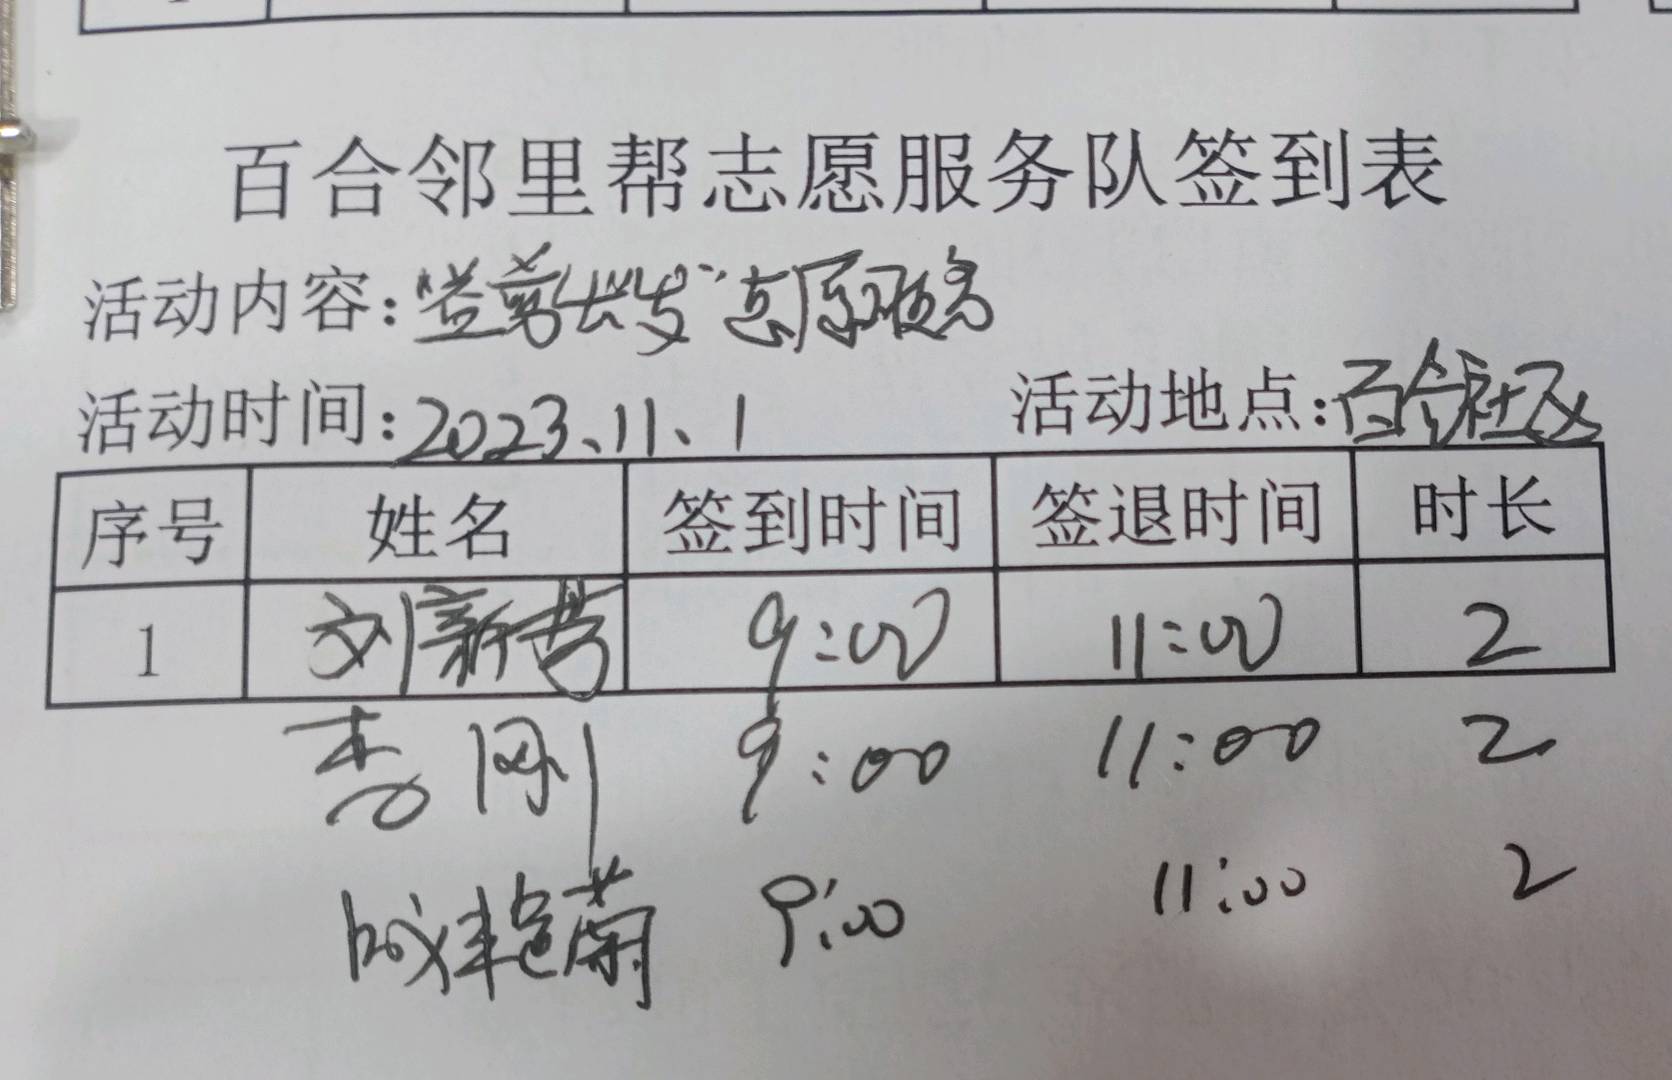 百合邻里帮志愿服务队签到表
活动内容:"益剪长发"志愿服务
活动时间:2023、11、1 活动地点:百合社区
序号 姓名 签到时间 签退时间 时长
1 刘新芳 9:00 11:00 2
李刚 9:00 11:00 2
成艳菊 9:00 11:00 2